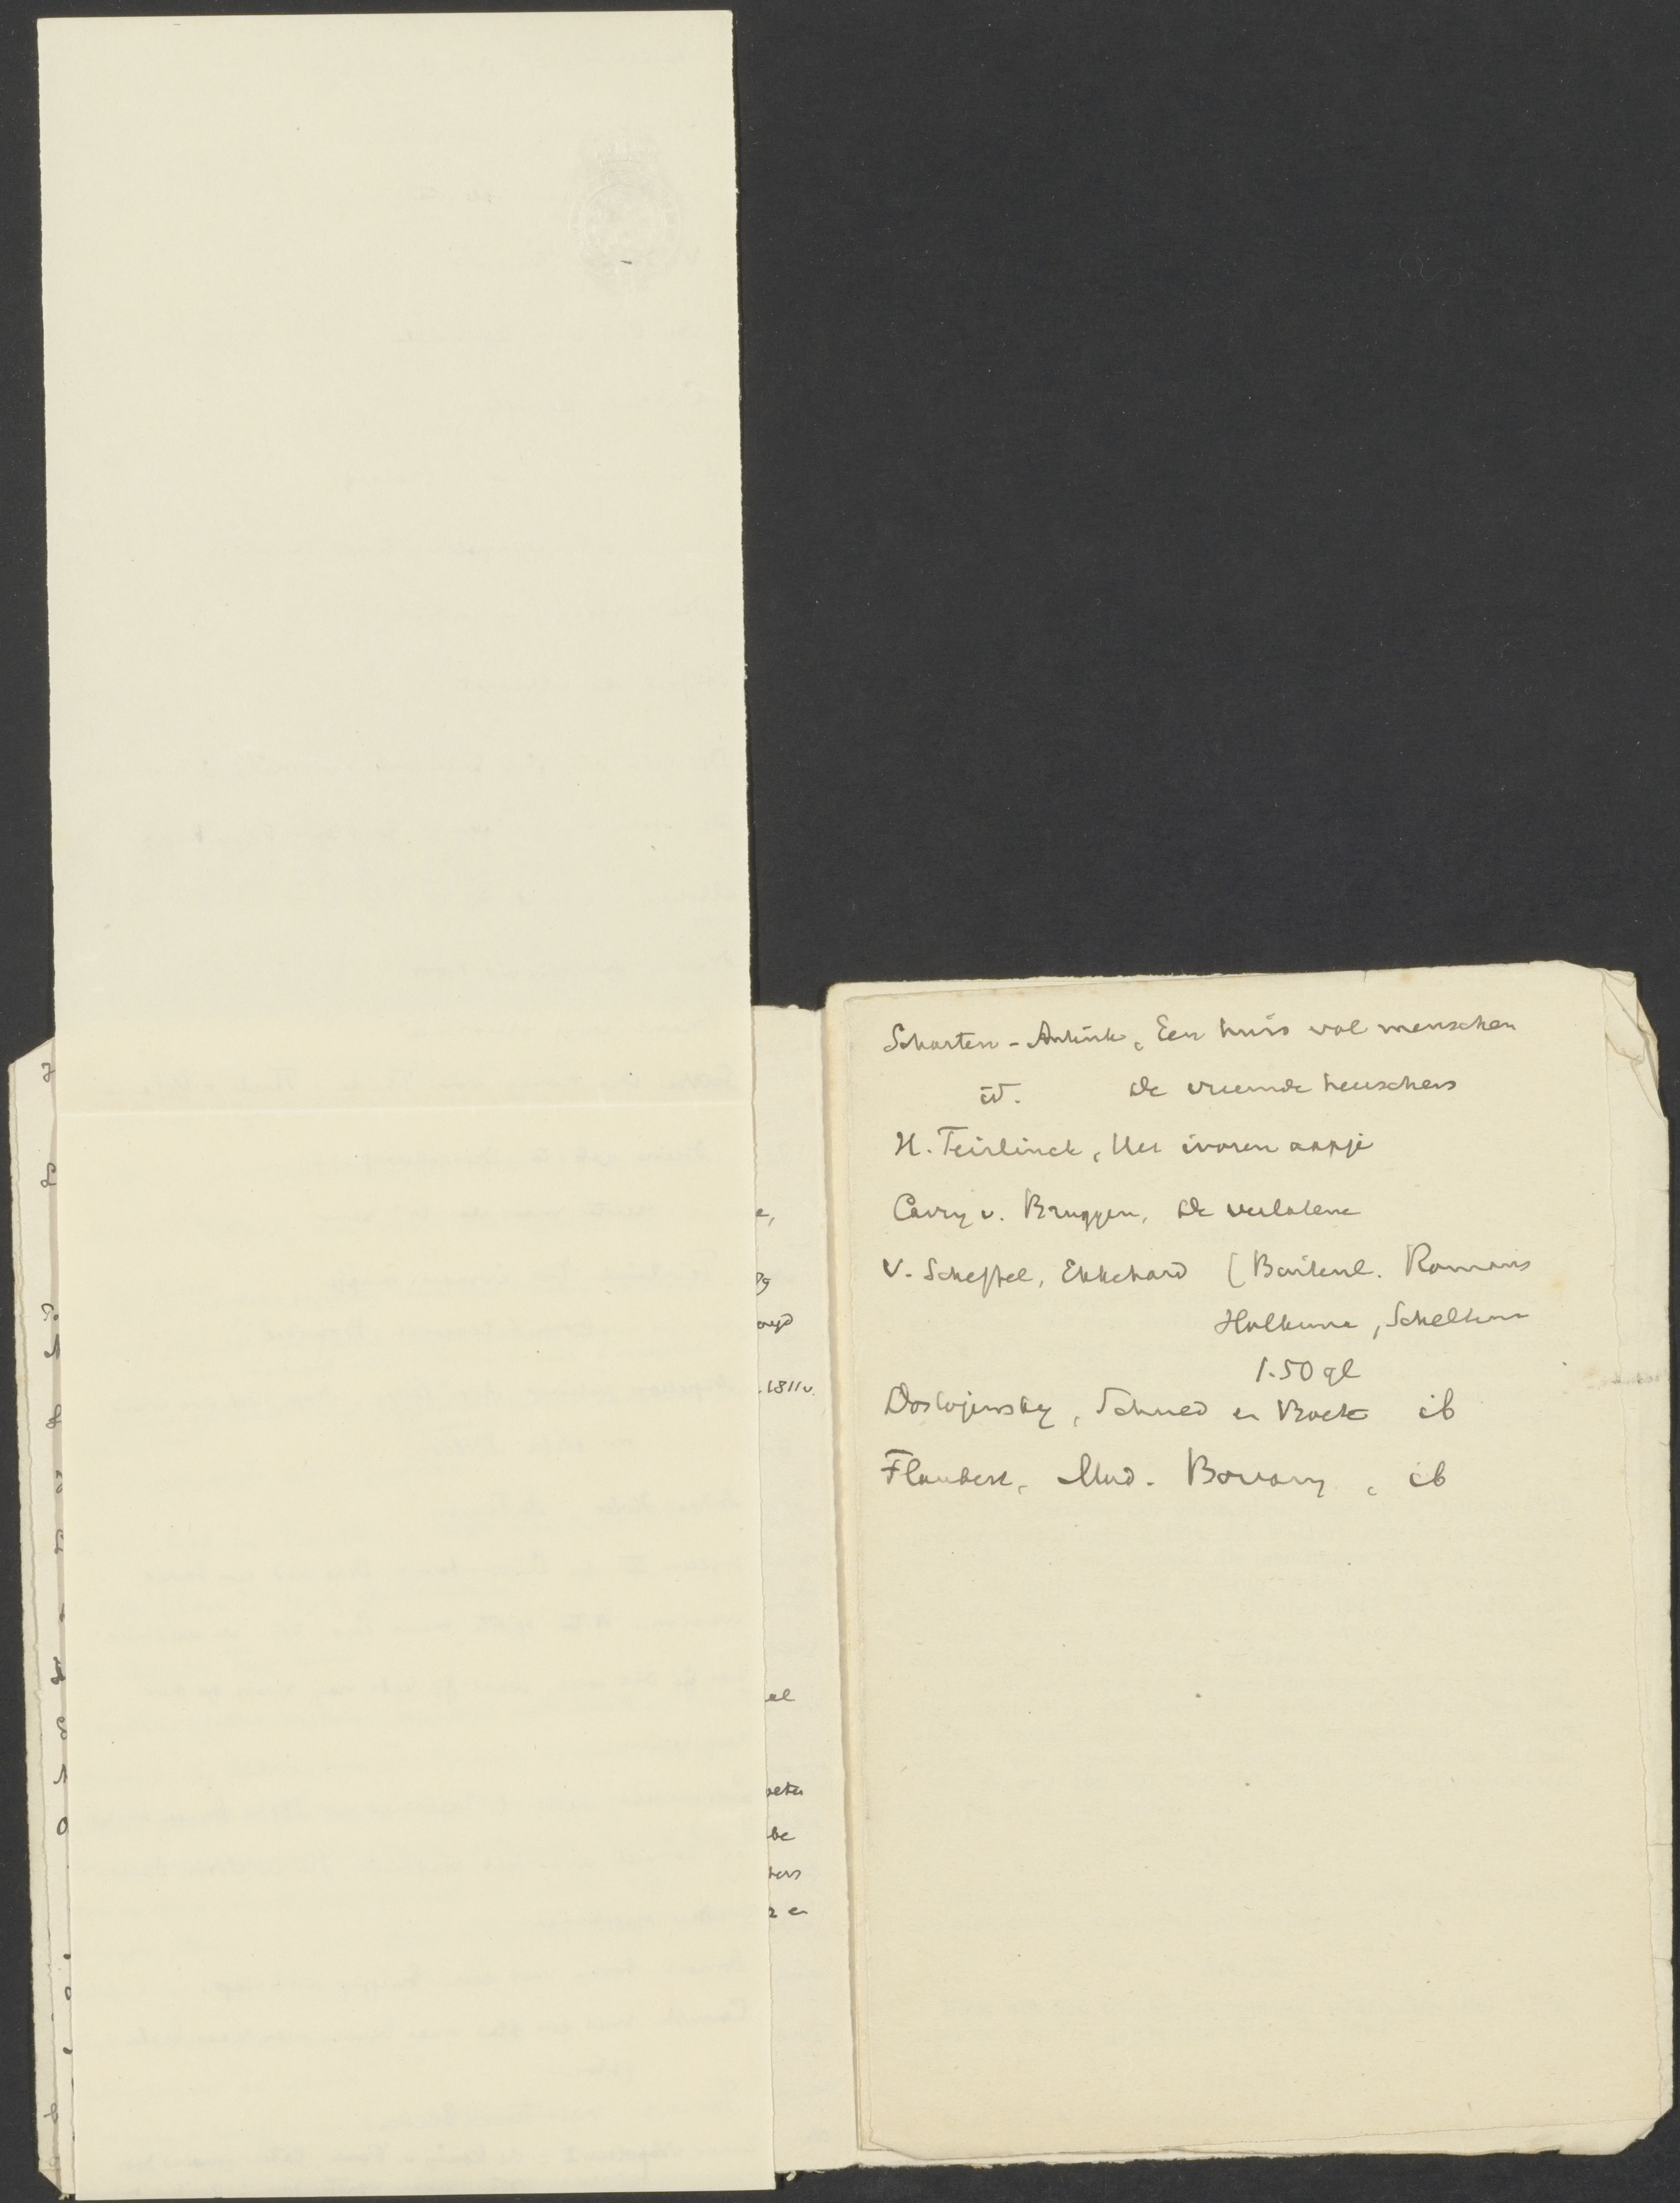 Scharten-Antink, Een huis vol menschen
id. De vreemde heerschers
H. Teirlinck, Het ivoren aapje
Carry v. Bruggen, De verlatene
V. Scheffel, Ekkehard (Buitenl. Romans
Holkema, Schelkema
1.50 gl
Dostojewsky, Schuld en Boete ib
Flaubert, Mad. Bovary, ib
1811v.